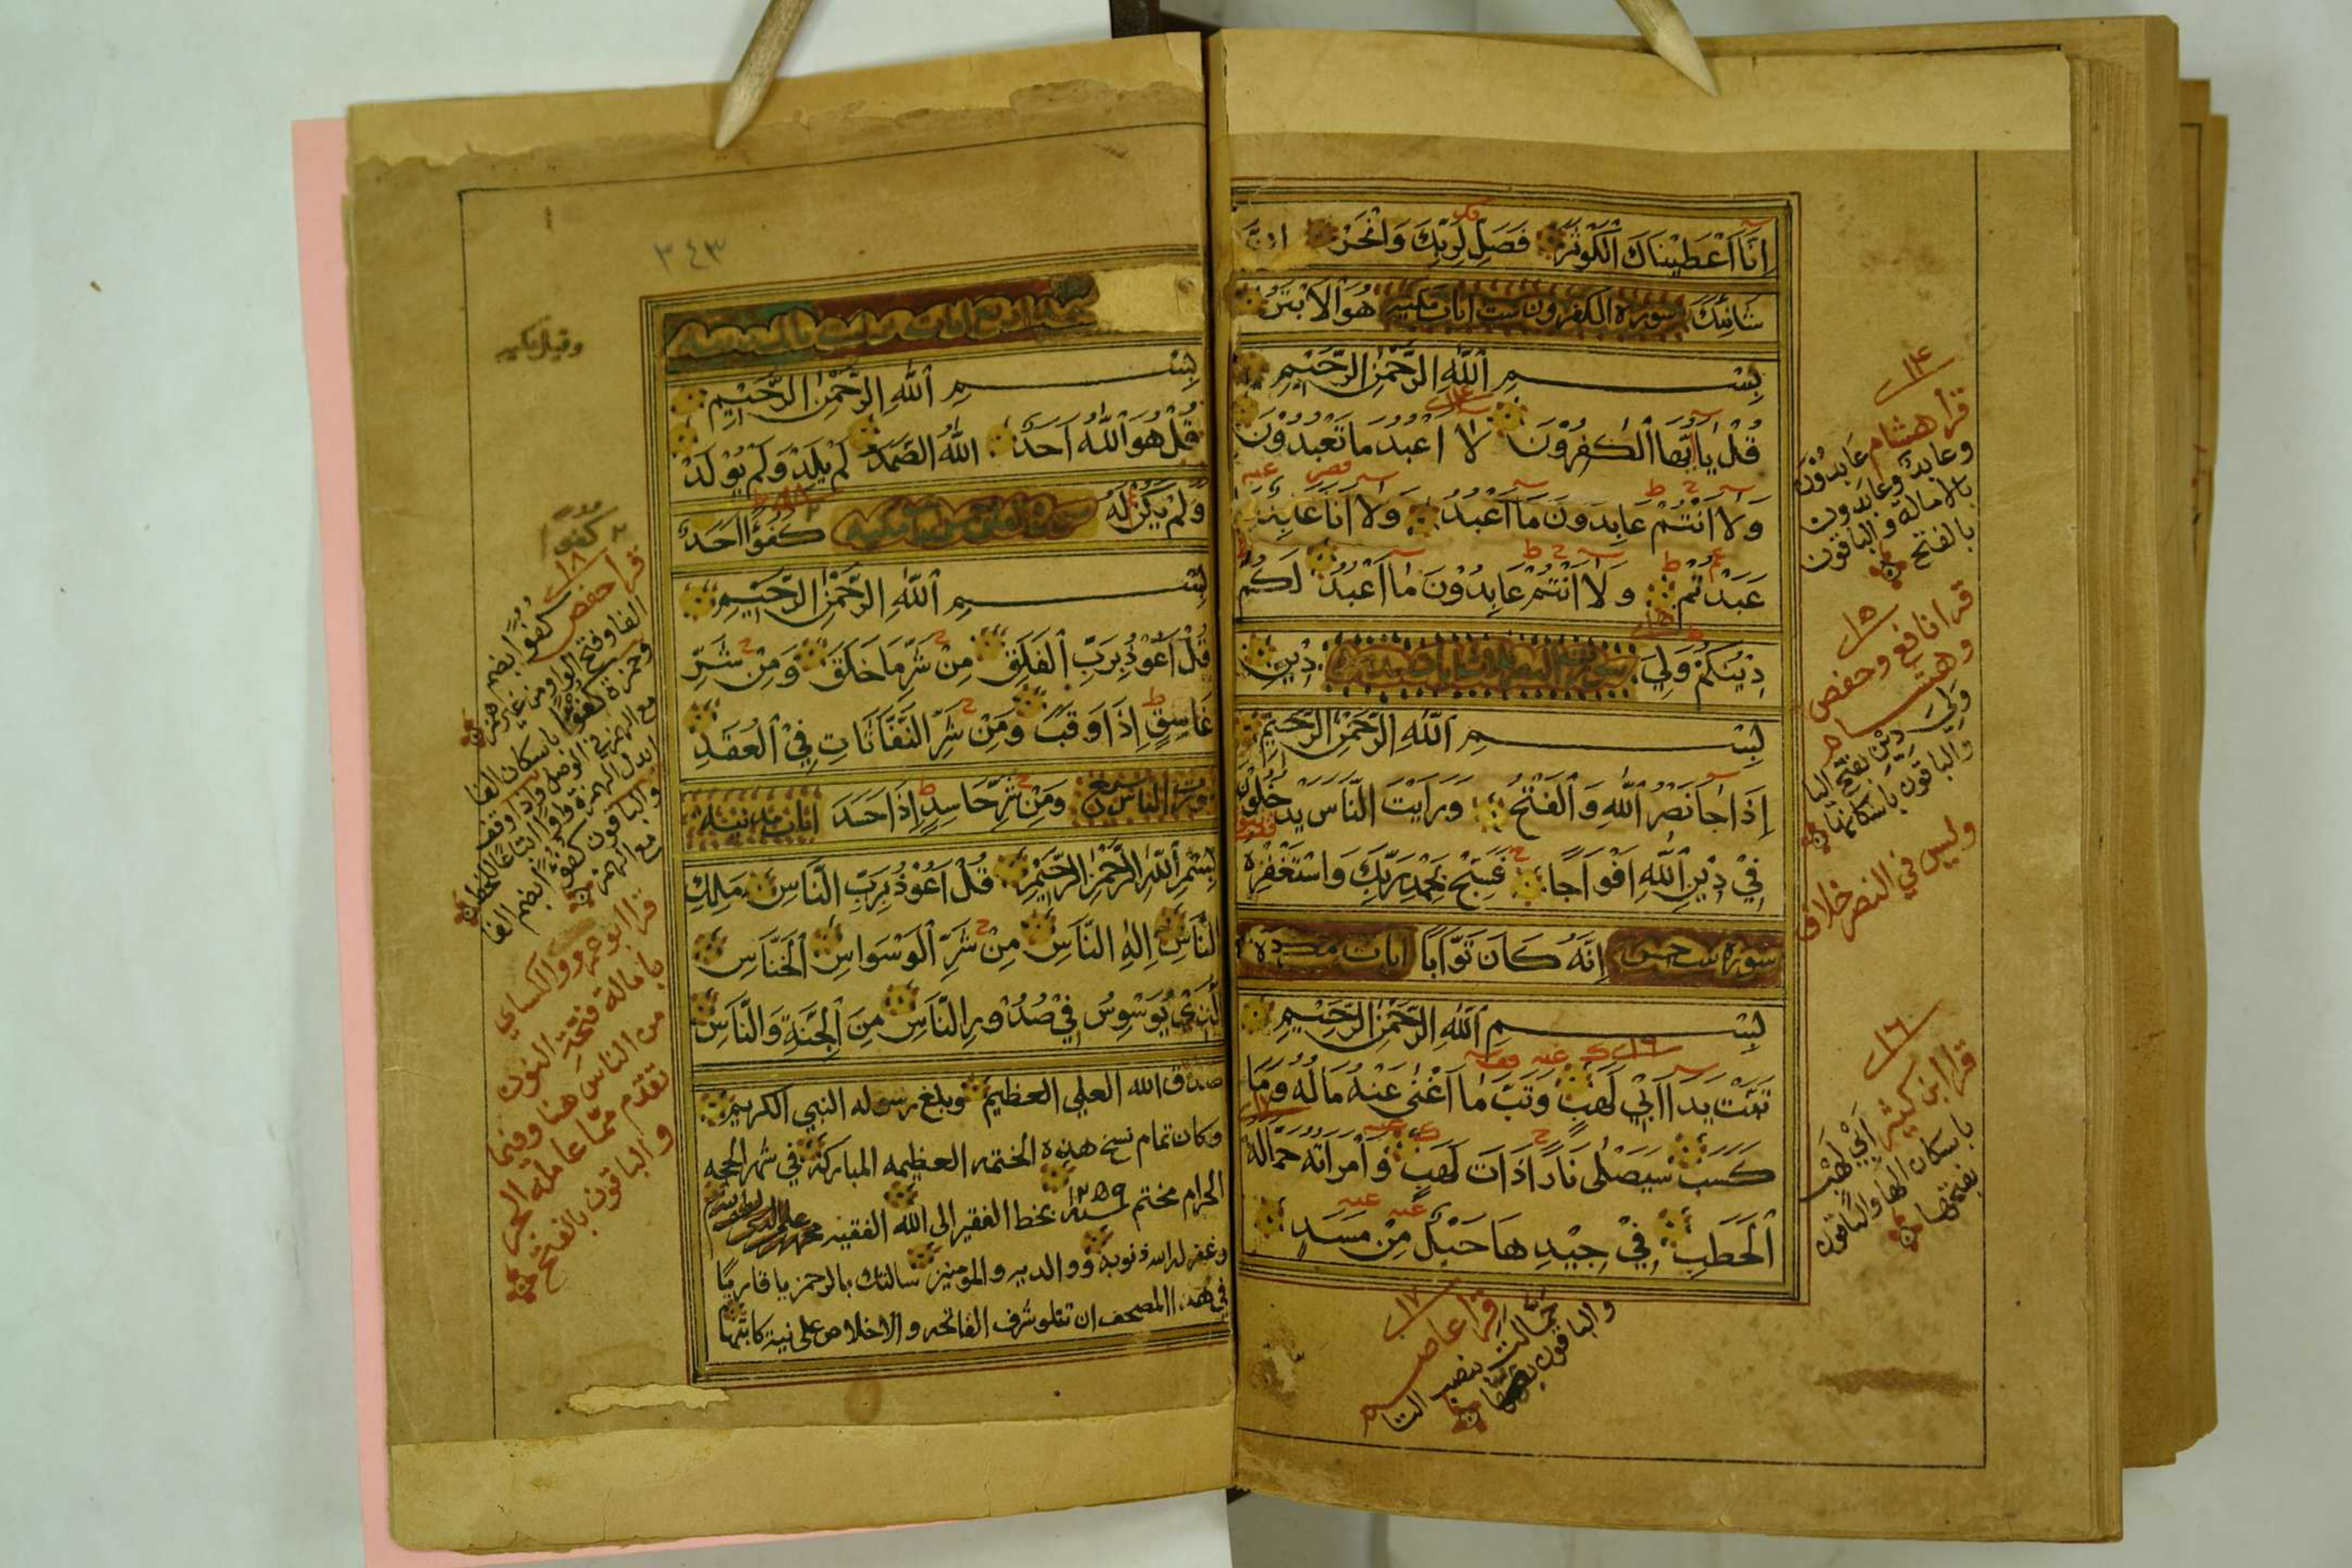 إِنَّا أَعْطَيْنَاكَ الْكَوْثَرَ فَصَلِّ لِرَبِّكَ وَانْحَرْ اِنَّ
شَانِئَكَ هُوَ الْاَبْتَرُ
سورة الكفرون ست ايات مكيه
بِسْمِ اللَّهِ الرَّحْمَٰنِ الرَّحِيمِ
قُلْ يَا اَيُّهَا الْكٰفِرُوْنَ لَا اَعْبُدُ مَا تَعْبُدُوْنَ
وَلَا اَنْتُمْ عَابِدُونَ مَا اَعْبُدُ وَلَا اَنَا عَابِدٌ مَا
عَبَدْتُمْ وَلَا اَنْتُمْ عَابِدُوْنَ مَا اَعْبُدُ لَكُمْ
دِيْنُكُمْ وَلِيَ دِيْنِ
بِسْمِ اللَّهِ الرَّحْمَٰنِ الرَّحِيمِ
اِذَا جَا نَصْرُ اللّٰهِ وَالْفَتْحُ وَرَاَيْتَ النَّاسَ يَدْخُلُوْنَ
فِيْ دِيْنِ اللّٰهِ اَفْوَاجًا فَسَبِّحْ بِحَمْدِ رَبِّكَ وَاسْتَغْفِرْهُ
اِنَّهُ كَانَ تَوَّابًا
سورة تبت خمس ايات
بِسْمِ اللَّهِ الرَّحْمَٰنِ الرَّحِيمِ
تَبَّتْ يَدَا اَبِيْ لَهَبٍ وَتَبَّ مَا اَغْنٰى عَنْهُ مَالُهُ وَمَا
كَسَبَ سَيَصْلٰى نَارًا ذَاتَ لَهَبٍ وَاْمْرَاَتُهُ حَمَّالَةَ
الْحَطَبِ فِيْ جِيْدِهَا حَبْلٌ مِنْ مَسَدٍ
١٤
قرا هشام عَابِدُوْنَ
وعابد وعابدون
بالامالة والباقون
بالفتح
١٥
قرا نافع وحفص
وهشام
وَلِيَ دِيْنِ بفتح اليا
والباقون باسكانها
وليس في النصر خلاف
١٦
قرا ابن كثير اَبِيْ لَهْب
باسكان الها والباقون
بفتحها
١٧
قرا عاصم
حمالة بنصب التا
والباقون
٣٤٣
بِسْمِ اللَّهِ الرَّحْمَٰنِ الرَّحِيمِ
قُلْ هُوَ اللّٰهُ اَحَدٌ اللّٰهُ الصَّمَدُ لَمْ يَلِدْ وَلَمْ يُوْلَدْ
وَلَمْ يَكُنْ لَهُ كُفُؤًا اَحَدٌ
بِسْمِ اللَّهِ الرَّحْمَٰنِ الرَّحِيمِ
قُلْ اَعُوْذُ بِرَبِّ الْفَلَقِ مِنْ شَرِّ مَا خَلَقَ وَمِنْ شَرِّ
غَاسِقٍ اِذَا وَقَبَ وَمِنْ شَرِّ النَّفَّاثَاتِ فِيْ الْعُقَدِ
وَمِنْ شَرِّ حَاسِدٍ اِذَا حَسَدَ
سورة الناس ست ايات مدنية
بِسْمِ اللّٰهِ الرَّحْمٰنِ الرَّحِيْمِ قُلْ اَعُوْذُ بِرَبِّ النَّاسِ مَلِكِ
النَّاسِ اِلٰهِ النَّاسِ مِنْ شَرِّ الْوَسْوَاسِ الْخَنَّاسِ
الَّذِيْ يُوَسْوِسُ فِيْ صُدُوْرِ النَّاسِ مِنَ الْجِنَّةِ وَالنَّاسِ
صدق الله العلي العظيم وبلغ رسوله النبي الكريم
وكان تمام نسخ هذه الختمه العظيمه المباركة في شهر الحجه
الحرام مختتم سنة ١٢٥٩ بخط الفقير الى الله الفقيه
وغفر له الله ذنوبه ووالديه والمومنين سالتك بالرحمن يا قاريًا
في هذا المصحف ان تتلو شرف الفاتحه والاخلاص على نية كاتبها
وقيل مكيه
كفوا
١٨
قرا حفص
كُفُوًا بضم
الفا وفتح الواو من غير همز
وحمزة كفؤا باسكان الفا
مع الهمز في الوصل واذا وقف
ابدل الهمزة واوا اتباعا للخط
والباقون كفؤا بضم الفا
مع الهمز
قرا ابو عمرو والكساي
بامالة فتحة النون
من الناس هنا وفيما
تقدم مما عامله الجر
والباقون بالفتح